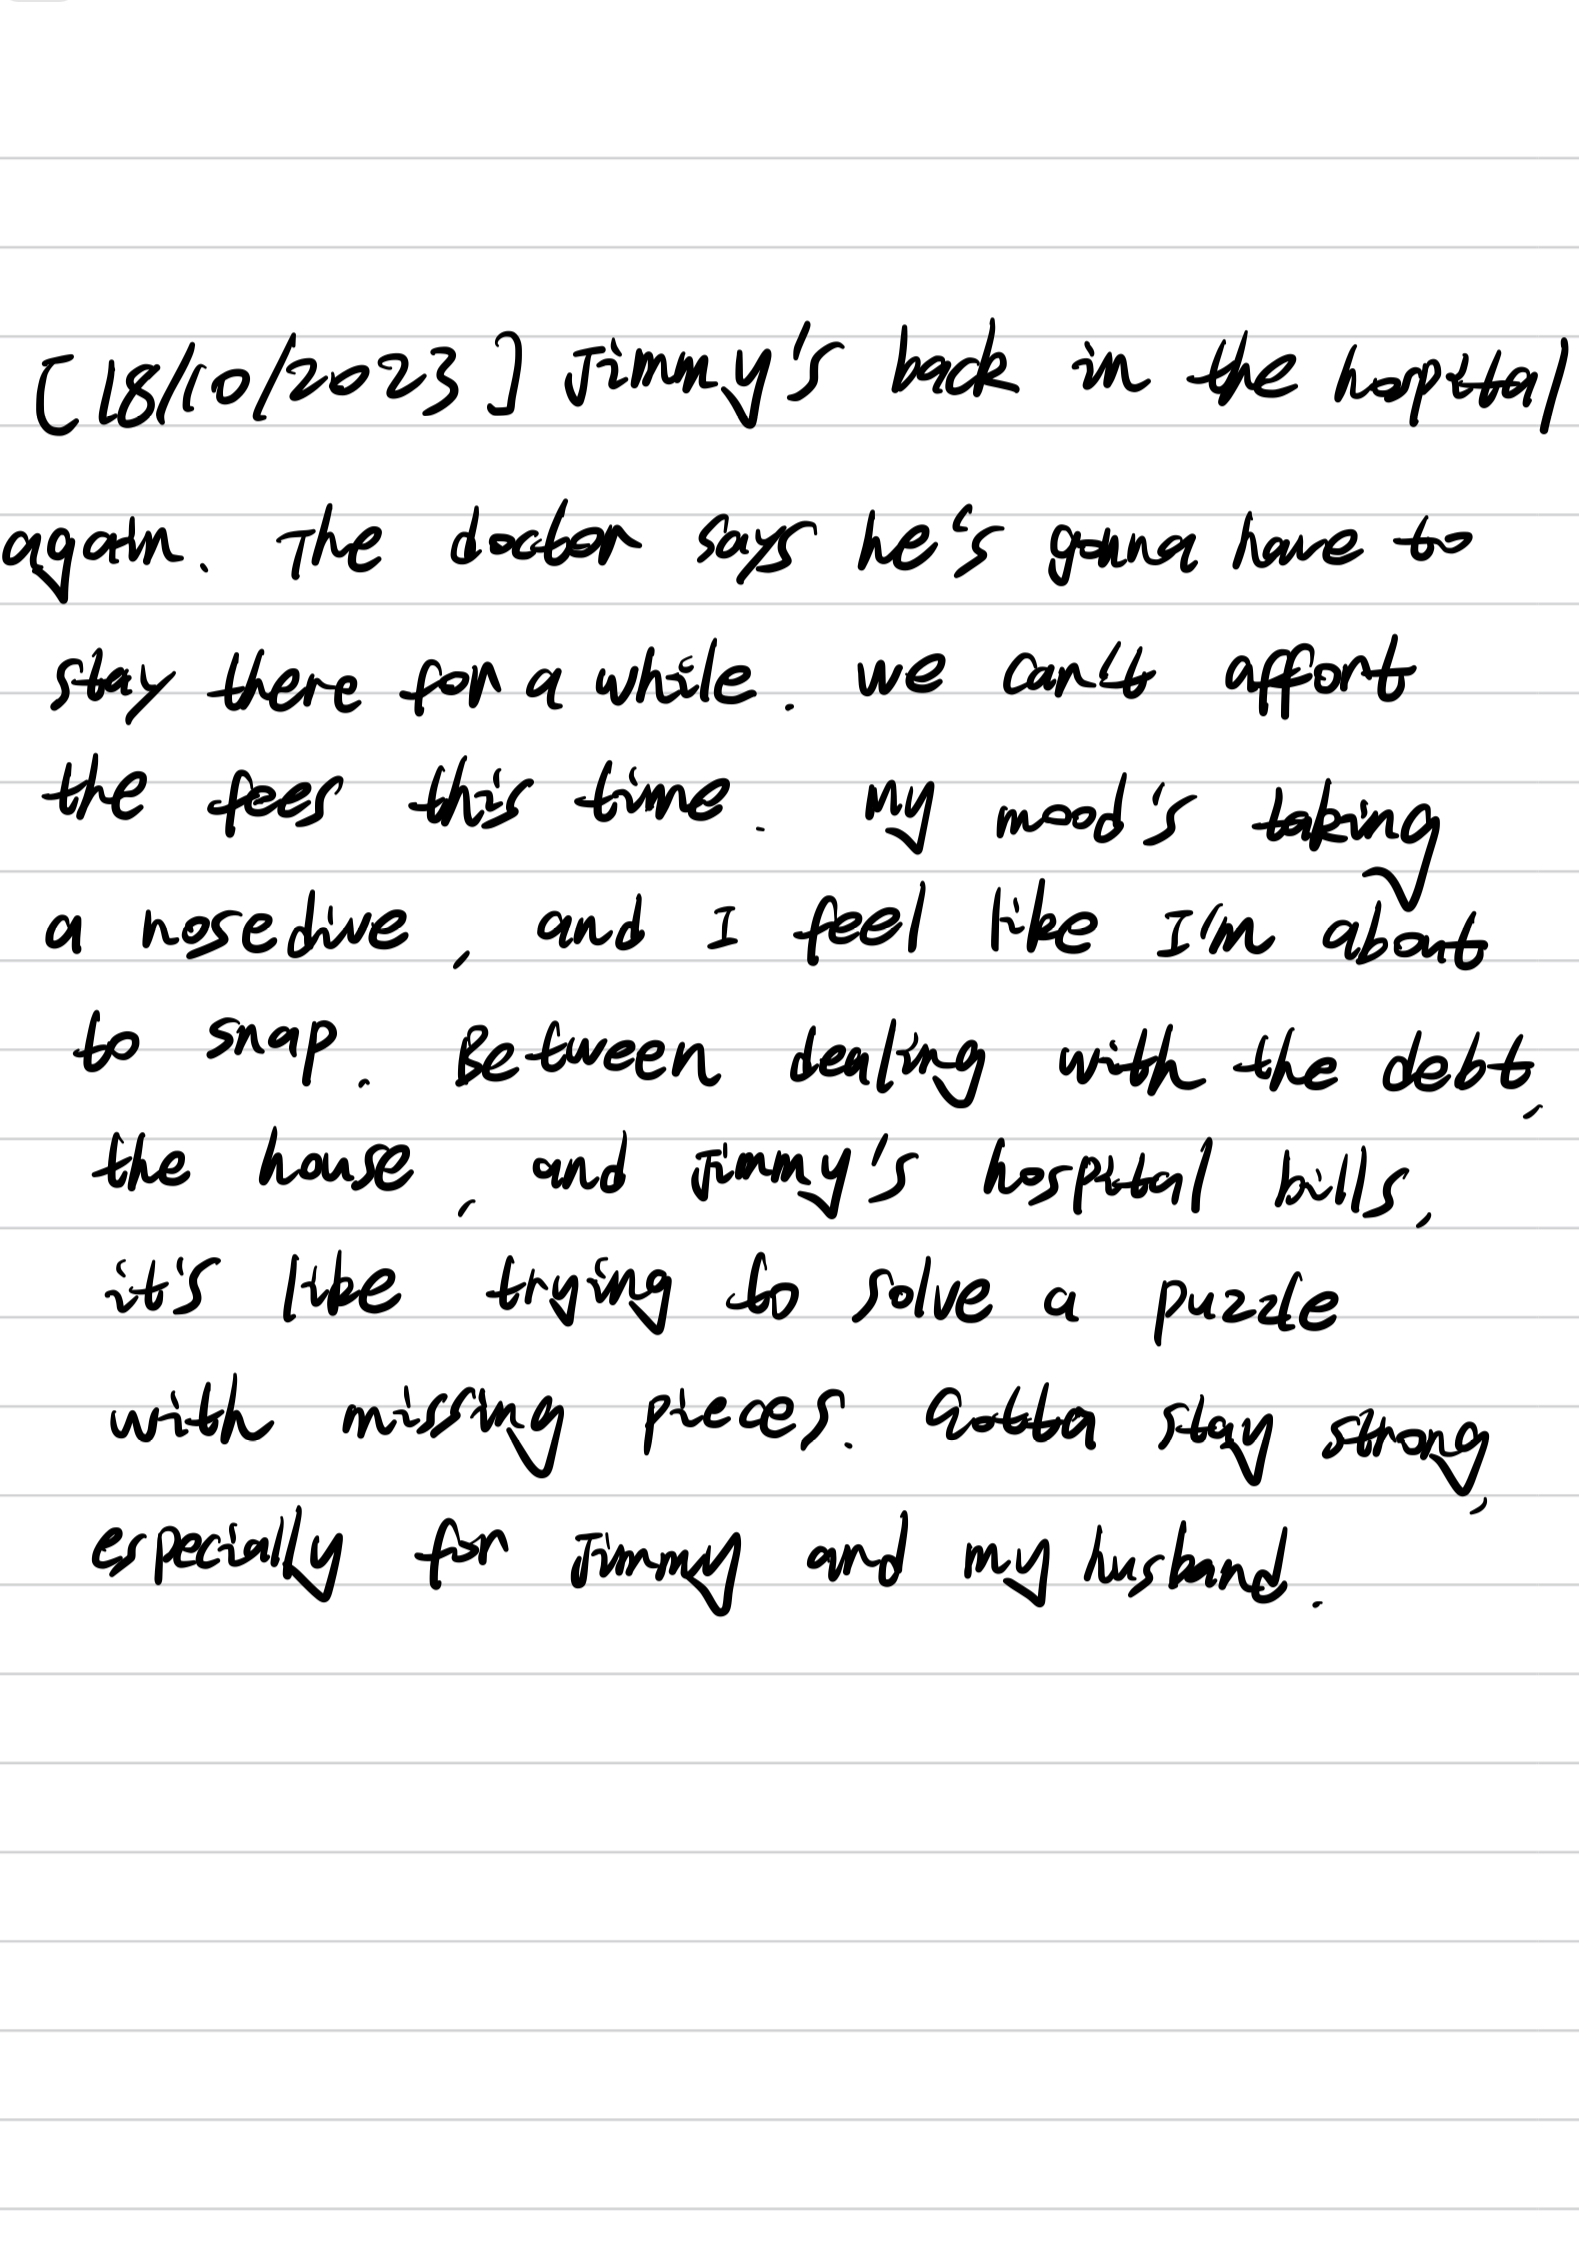 [18/10/2023] Jimmy's back in the hospital
again. The doctor says he's gonna have to
stay there for a while. we can't affort
the fees this time. My mood's taking
a nosedive, and I feel like I'm about
to snap. Between dealing with the debt,
the house, and Jimmy's hospital bills,
it's like trying to solve a puzzle
with missing pieces. Gotta stay strong,
especially for Jimmy and my husband.